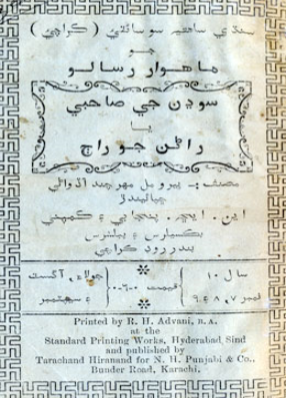 سنڌي ساهتيه سوسائٽي (ڪراچي)
جو
ماهوار رسالو
سوڍن جي صاحبي
يا
راڻن جو راڄ
مصنف:- ڀيرومل مهرچند آڏواڻي
ڇپائيندڙ
اين. ايڇ. پنجابي ۽ ڪمپني
بڪسيلرس ۽ پبلشرس
بندر روڊ ڪراچي
سال ١٠ قيمت ٠-٦-٠ جولاءِ، آگسٽ
نمبر ٧، ٨ ۽ ٩ ۽ سيپٽمبر
Printed by R. H. Advani, B.A.
at the
Standard Printing Works, Hyderabad Sind
and published by
Tarachand Hiranand for N. H. Punjabi & Co.,
Bunder Road, Karachi.